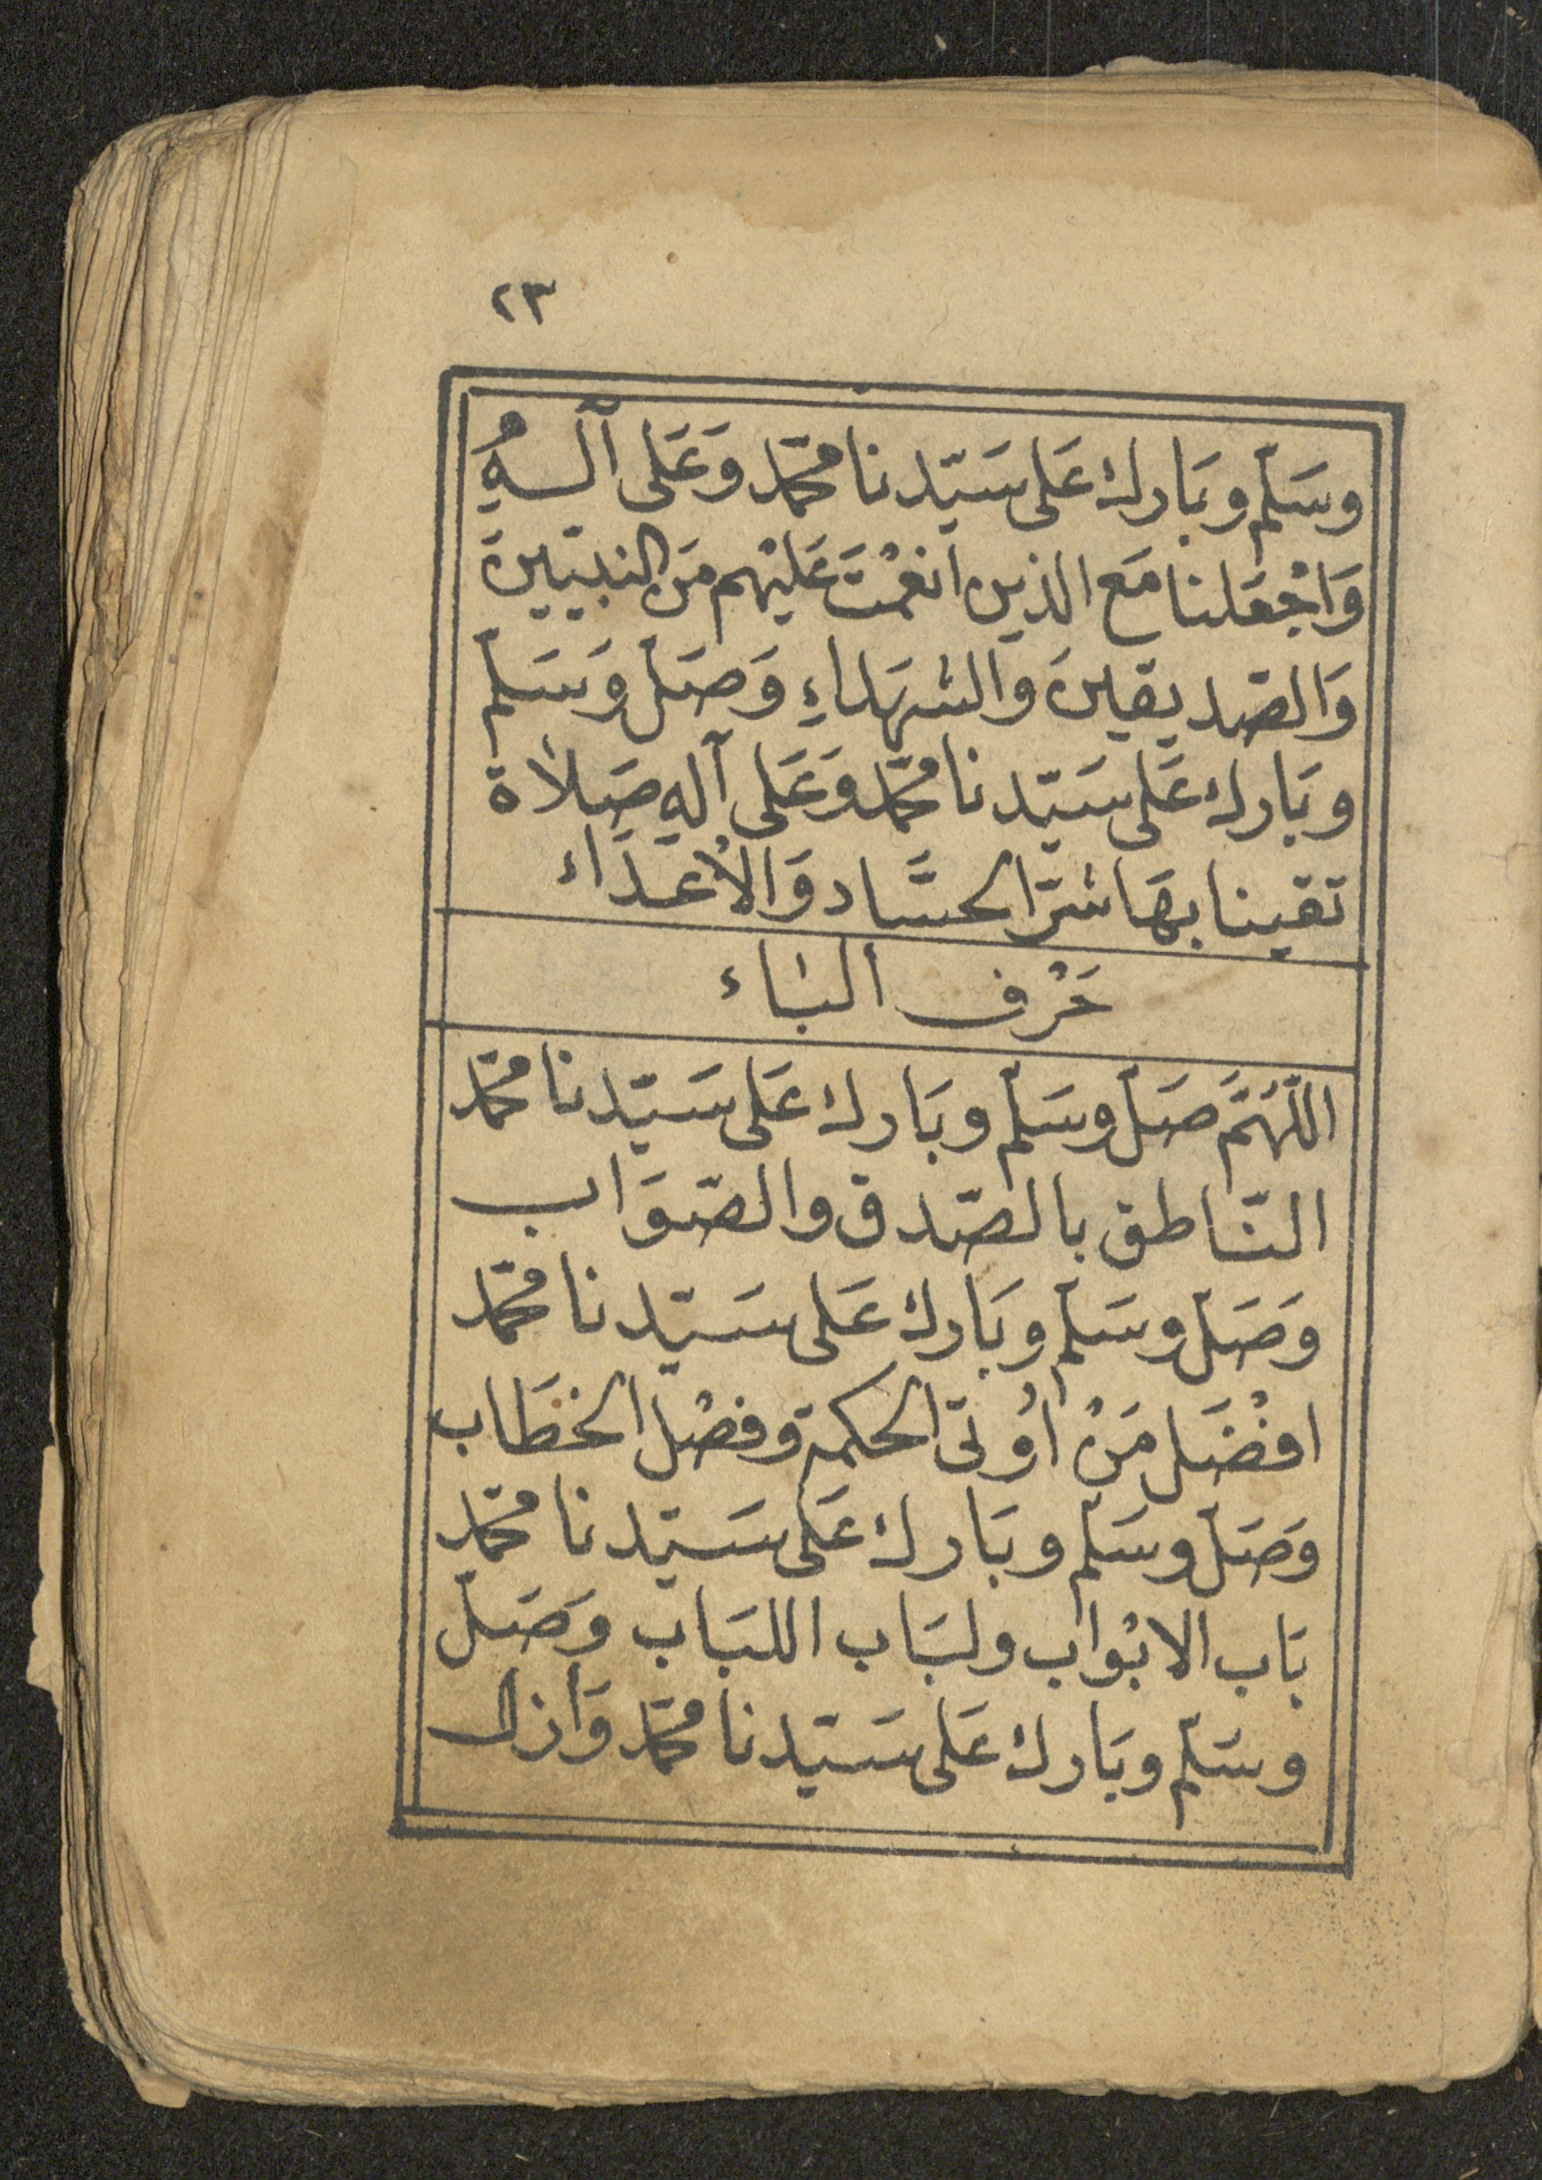 ٢٣
وسَلّم وبَارك عَلى سَيّدنا محمّد وَعَلى آلــهِ
وَاجْعَلنا مَع الذين انعمْتَ عَليْهم مَن النبيّينَ
وَالصّديقينَ وَالشهَداءِ وَصَلّ وَسَلّم
وبَارك عَلى سَيّدنا محمّد وَعَلى آلهِ صَلاة
تقينا بهَا شرّ الحسَّاد وَالأعدَاء
حَرْف البَاء
اللّهُمَّ صَلّ وسَلّم وبَارك عَلى سَيّدنا محمّد
النّاطق بالصّدق والصّوَاب
وَصَلّ وسَلّم وبَارك عَلى سَيّدنا محمّد
افضَل مَنْ أوُتى الحكمة وفصْل الخطَاب
وَصَلّ وسَلّم وبَارك عَلى سَيّدنا محمّد
بَاب الابْواب ولبَاب اللبَاب وَصَلّ
وسَلّم وبَارك عَلى سَيّدنا محمّد وَأزل